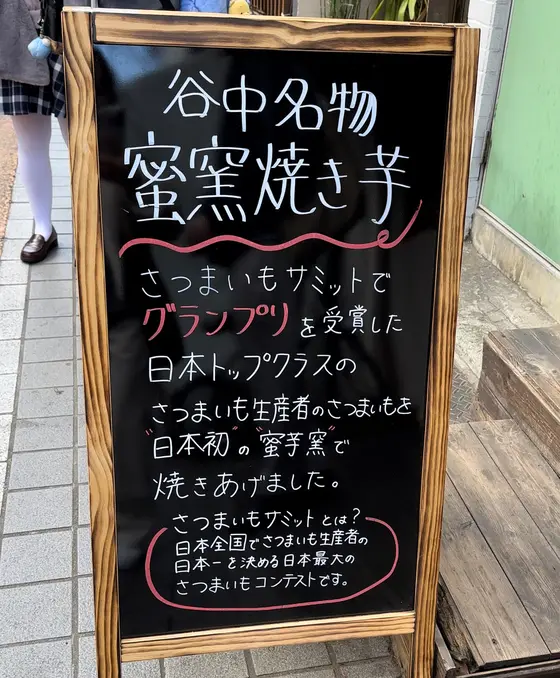 谷中名物
蜜窯焼き芋
さつまいもサミットで
グランプリを受賞した
日本トップクラスの
さつまいも生産者のさつまいもを
"日本初"の"蜜芋窯"で
焼きあげました。
さつまいもサミットとは?
日本全国でさつまいも生産者の
日本一を決める日本最大の
さつまいもコンテストです。